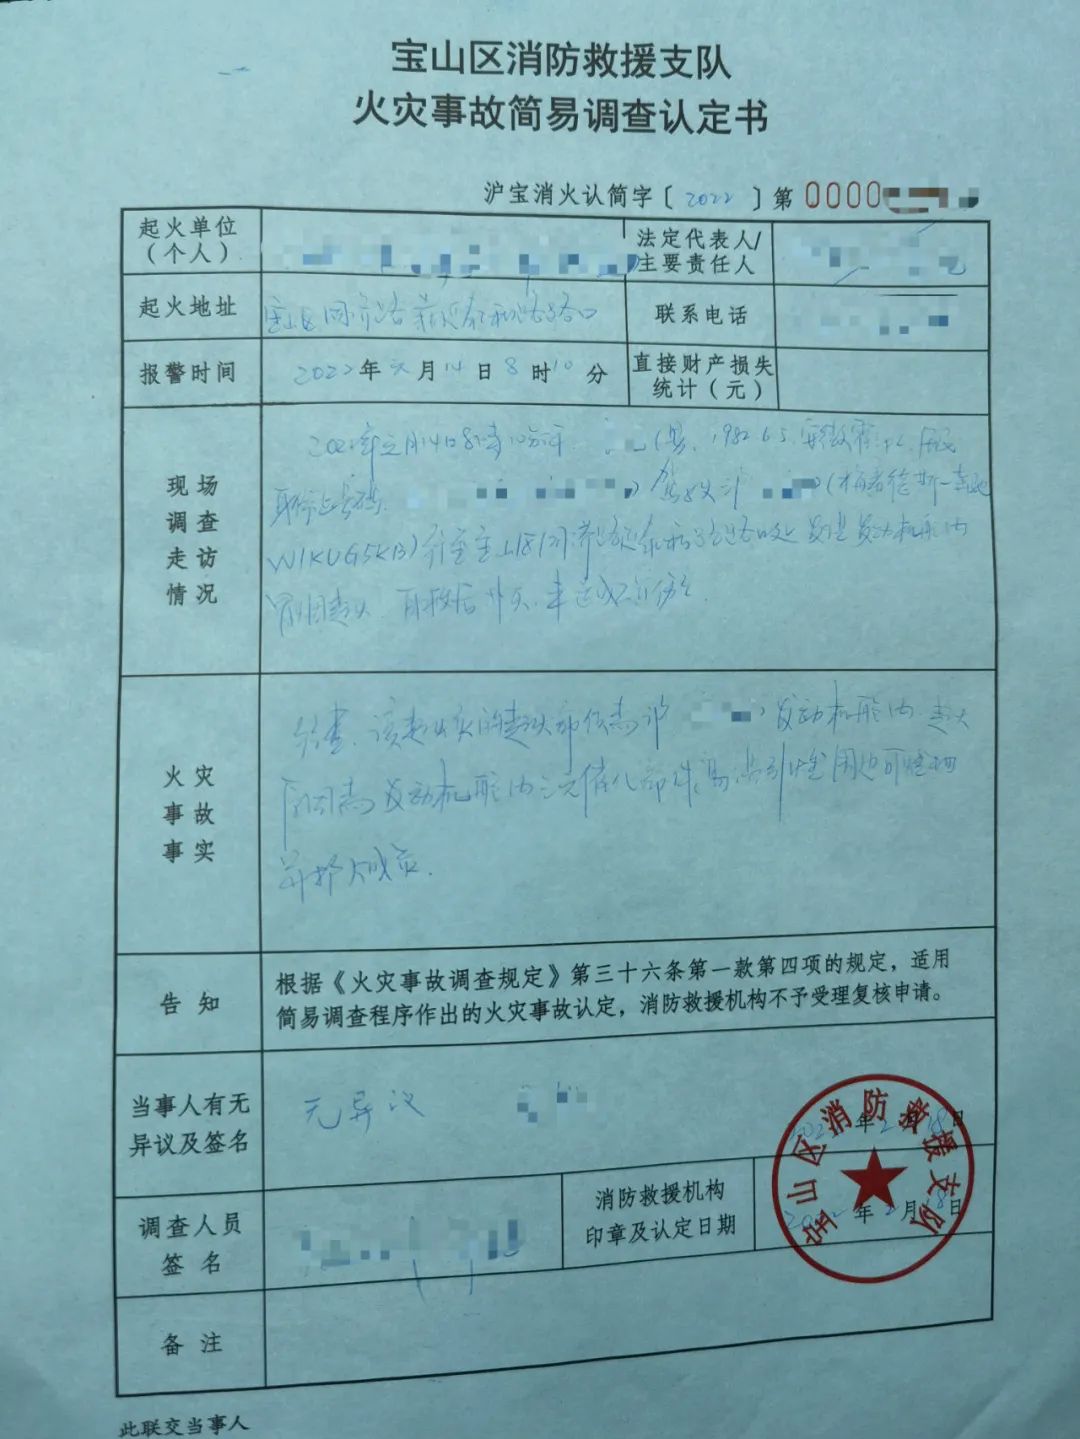 宝山区消防救援支队
火灾事故简易调查认定书
沪宝消火认简字〔2022〕第0000
起火单位
（个人）
法定代表人/
主要责任人
起火地址
宝山区同济路 泰和路路口
联系电话
报警时间
2022年元月14日8时10分
直接财产损失
统计（元）
现场
调查
走访
情况
2022年元月14日8时10分许 （男，1982.6.5.
驾驶沪 （梅赛德斯-奔驰
W1KUG5KB）行至宝山区同济路泰和路路口处 发生发动机舱内
冒烟起火，自救后扑灭，未造成人员伤亡.
火灾
事故
事实
经查，该起火灾的起火部位为沪 发动机舱内，起火
原因为发动机舱内三元催化部件高温引燃周边可燃物
并扩大成灾.
告知
根据《火灾事故调查规定》第三十六条第一款第四项的规定，适用
简易调查程序作出的火灾事故认定，消防救援机构不予受理复核申请。
当事人有无
异议及签名
无异议
2022年2月18日
调查人员
签名
消防救援机构
印章及认定日期
2022年2月18日
宝山区消防救援支队
备注
此联交当事人